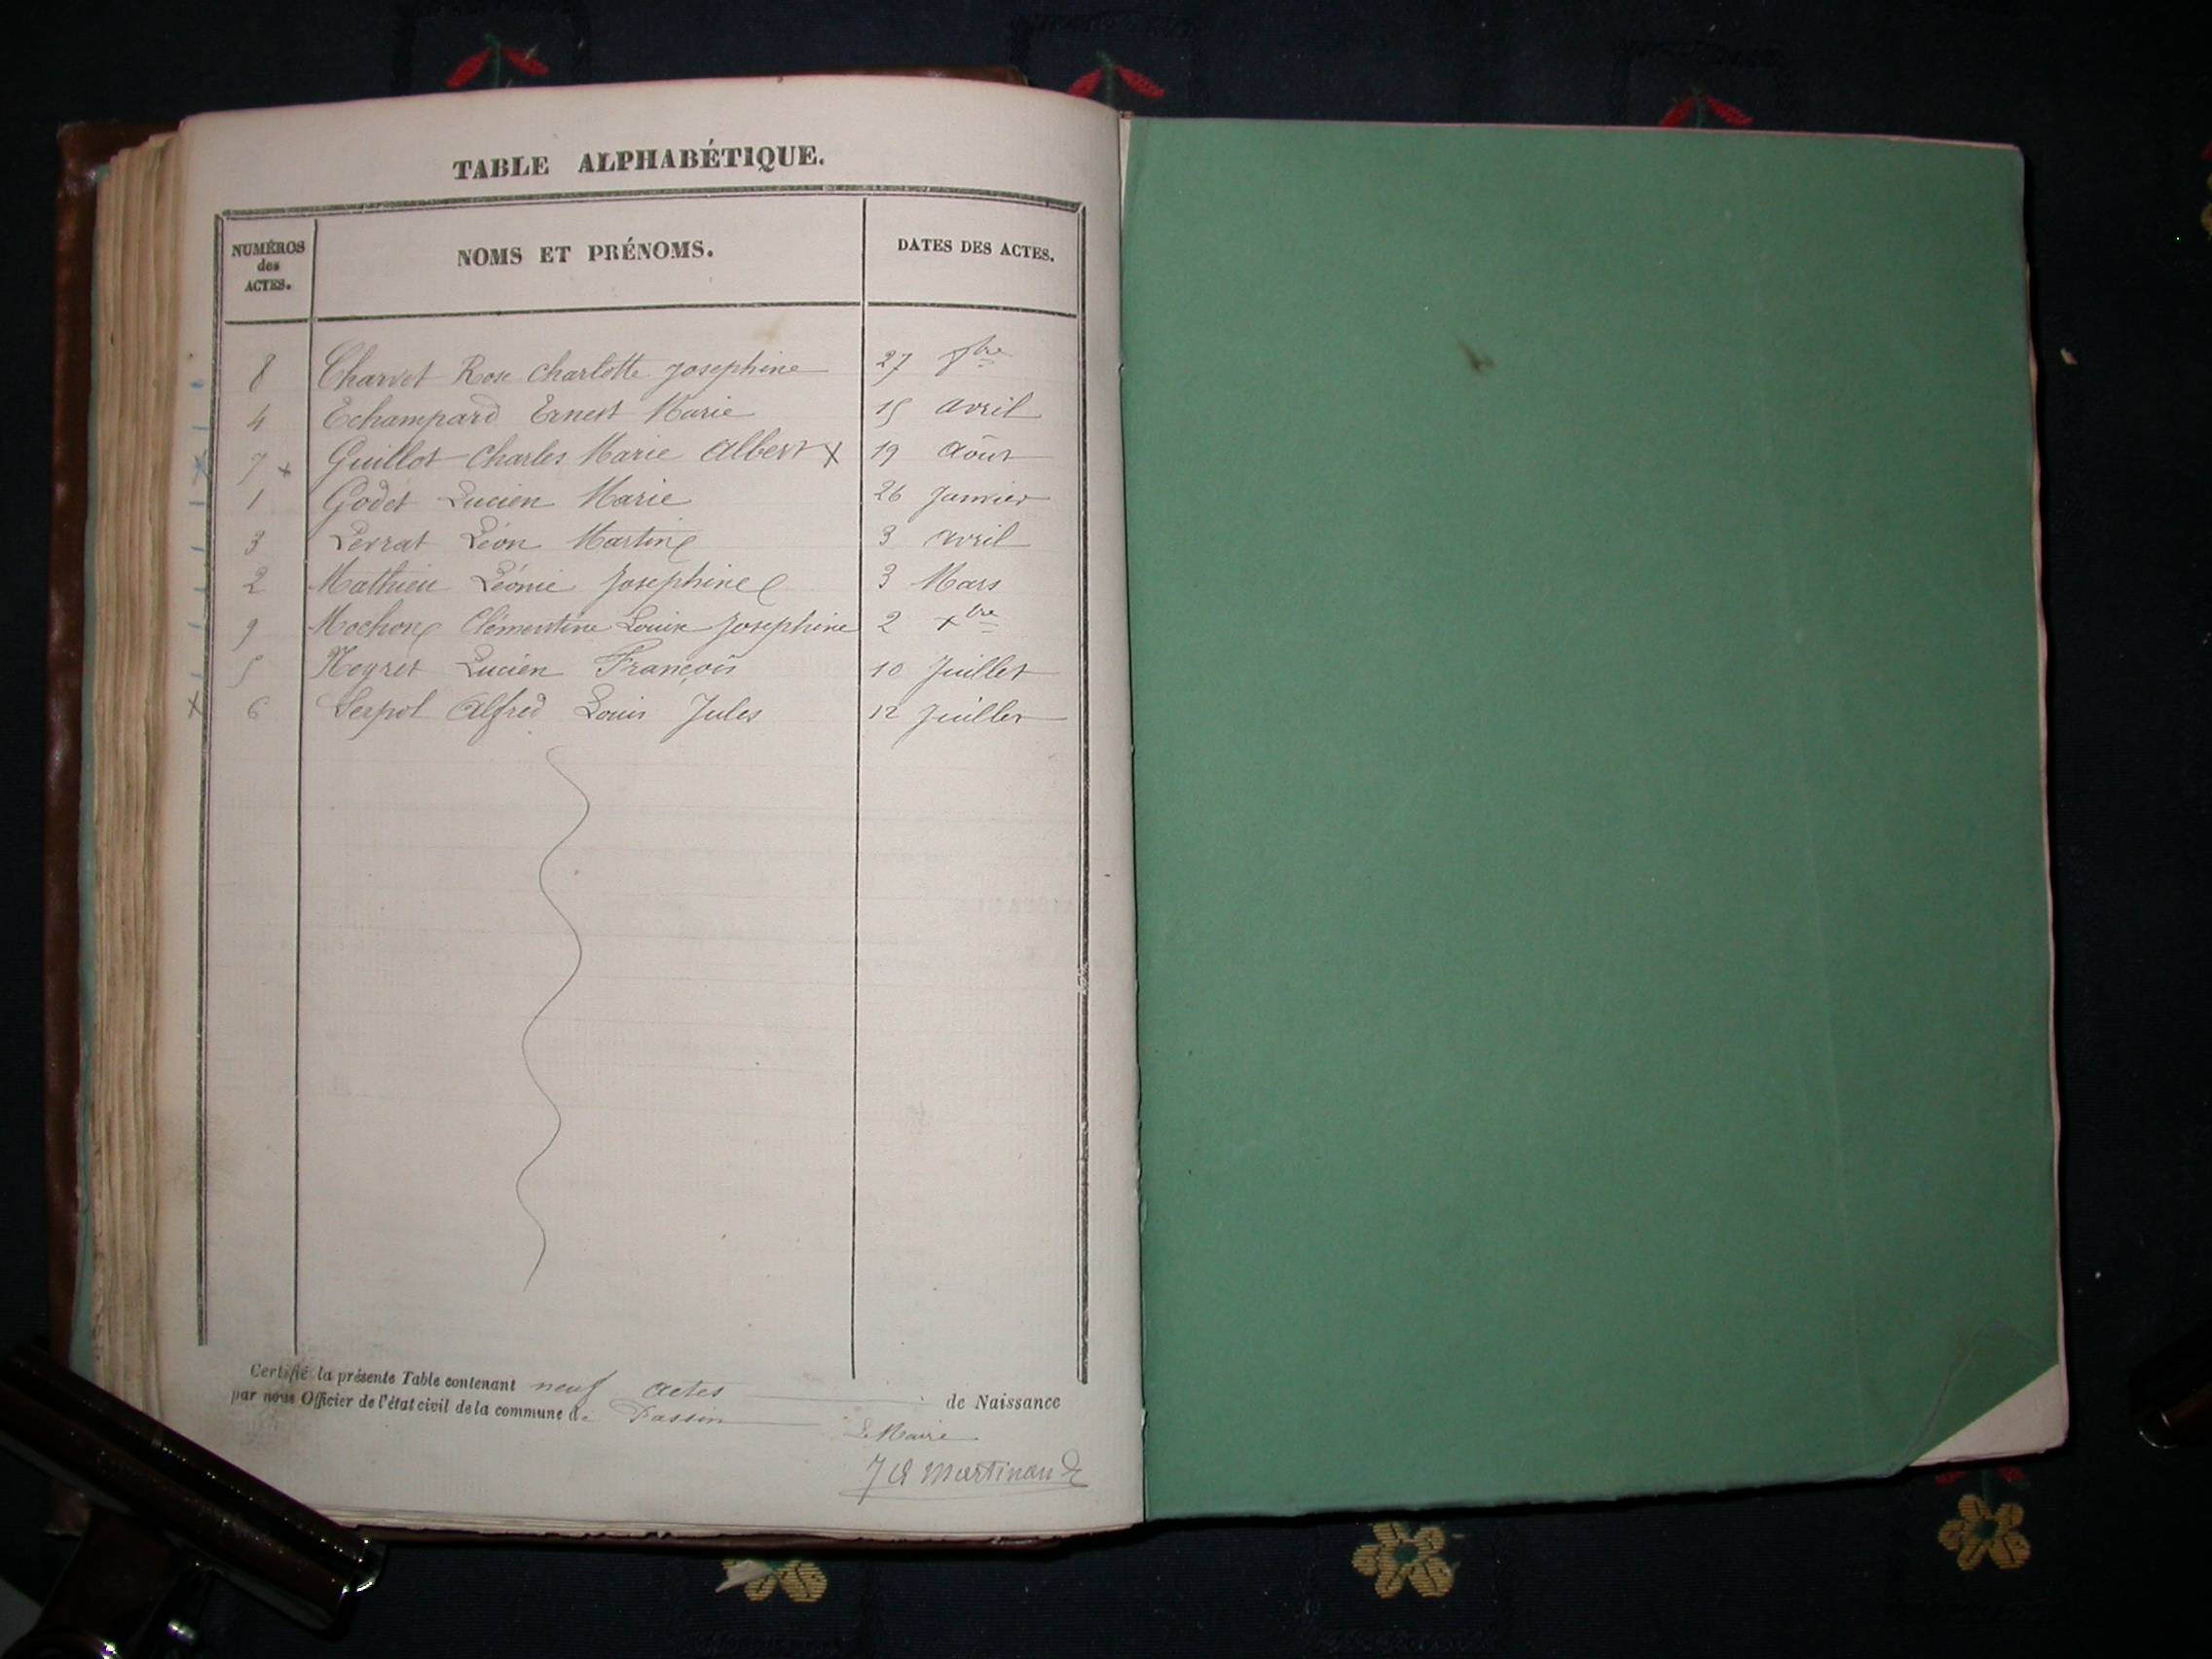 TABLE ALPHABÉTIQUE.
NUMÉROS des ACTES. NOMS ET PRÉNOMS. DATES DES ACTES.
8 Charvet Rose Charlotte Josephine 27 8bre
4 Echampard Ernest Marie 15 avril
7 x Guillot Charles Marie Albert x 19 Août
1 Godet Lucien Marie 26 Janvier
3 Léon Martin 3 avril
2 Mathieu Léonie Josephine 3 Mars
9 Mochon Clémentine Louise Josephine 2 xbre
5 Neyret Lucien François 10 Juillet
6 Serpol Alfred Louis Jules 12 Juillet
Certifié la présente Table contenant neuf actes de Naissance
par nous Officier de l'état civil de la commune de Passin
Le Maire
Martinand